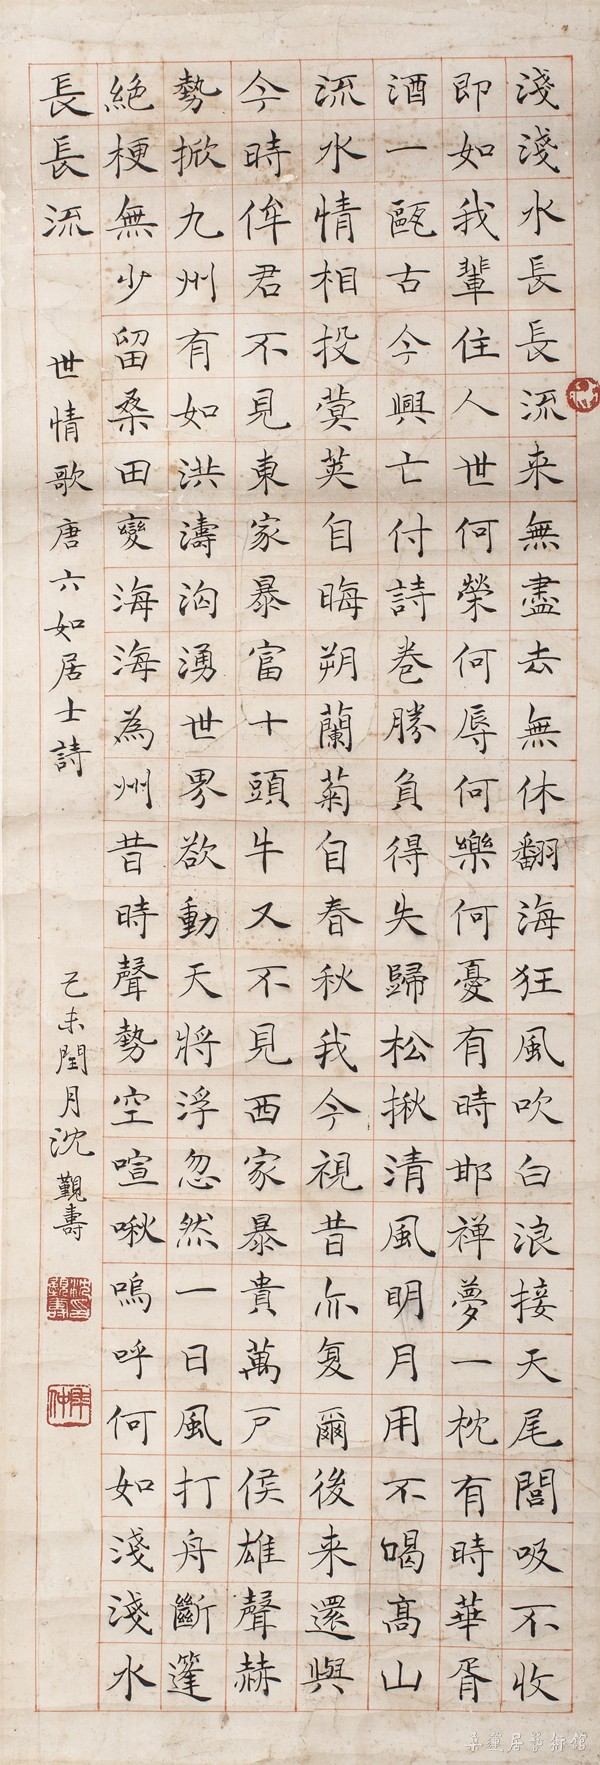 淺淺水長長流来無盡去無休翻海狂風吹白浪接天尾閭吸不收
即如我輩住人世何榮何辱何樂何憂有時邯禅夢一枕有時華胥
酒一甌古今興亡付詩卷勝負得失歸松揪清風明月用不喝高山
流水情相投蓂荚自晦朔蘭菊自春秋我今視昔亦复爾後来還與
今時侔君不見東家暴富十頭牛又不見西家暴貴萬戸侯雄聲赫
勢掀九州有如洪濤洶湧世界欲動天將浮忽然一日風打舟斷篷
絶梗無少留桑田變海海為州昔時聲勢空喧啾嗚呼何如淺淺水
長長流
世情歌唐六如居士詩
己未閏月沈覲壽
沈印覲壽
年仲
桑蓮居藝術館